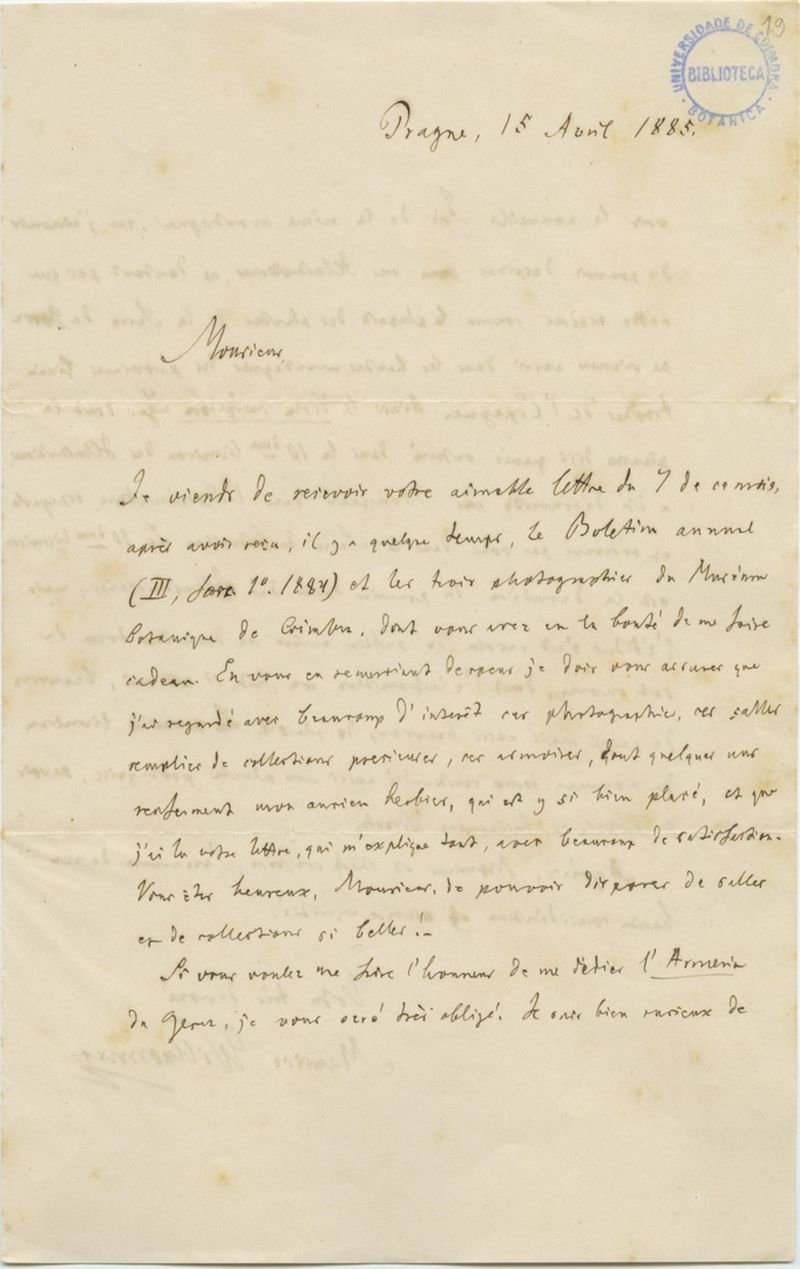 19
UNIVERSIDADE DE COIMBRA
BIBLIOTECA
BOTANICA
Prague, 15 Avril 1885.
Monsieur
Je viends de recevoir votre aimable lettre du 7 de ce mois,
après avoir reçu, il y a quelque temps, le Boletim annual
(III, fasc 1º. 1884) et les trois photographies du Muséum
botanique de Coimbra, dont vous avez eu la bonté de me faire
cadeau. En vous en remerciant de coeur je dois vous assurer que
j'ai regardé avec beaucoup d'interêt ces photographies, ces salles
remplies de collections precieuses, ces armoires, dont quelques uns
renferment mon ancien herbier, qui est y si bien placé, et que
j'ai lu votre lettre, qui m'explique tout, avec beaucoup de satisfaction.
Vous êtes heureux, Monsieur, de pouvoir disposer de salles
et de collections si belles!–
Si vous voulez me faire l'honneur de me dédier l'Armeria
du Gerez, je vous seré très obligé. Je suis bien curieux de